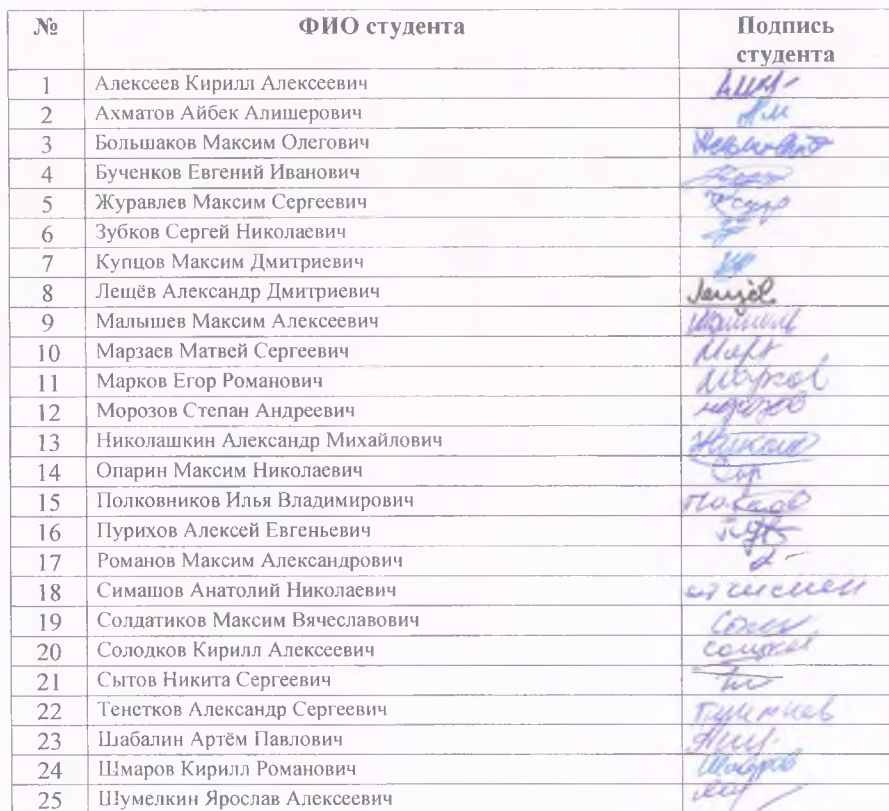 № ФИО студента Подпись
студента
1 Алексеев Кирилл Алексеевич
2 Ахматов Айбек Алишерович
3 Большаков Максим Олегович
4 Бученков Евгений Иванович
5 Журавлев Максим Сергеевич
6 Зубков Сергей Николаевич
7 Купцов Максим Дмитриевич
8 Лещёв Александр Дмитриевич Лещёв
9 Малышев Максим Алексеевич
10 Марзаев Матвей Сергеевич
11 Марков Егор Романович Марков
12 Морозов Степан Андреевич морозов
13 Николашкин Александр Михайлович
14 Опарин Максим Николаевич
15 Полковников Илья Владимирович
16 Пурихов Алексей Евгеньевич
17 Романов Максим Александрович
18 Симашов Анатолий Николаевич отчислен
19 Солдатиков Максим Вячеславович
20 Солодков Кирилл Алексеевич
21 Сытов Никита Сергеевич
22 Тенетков Александр Сергеевич
23 Шабалин Артём Павлович
24 Шмаров Кирилл Романович
25 Шумелкин Ярослав Алексеевич